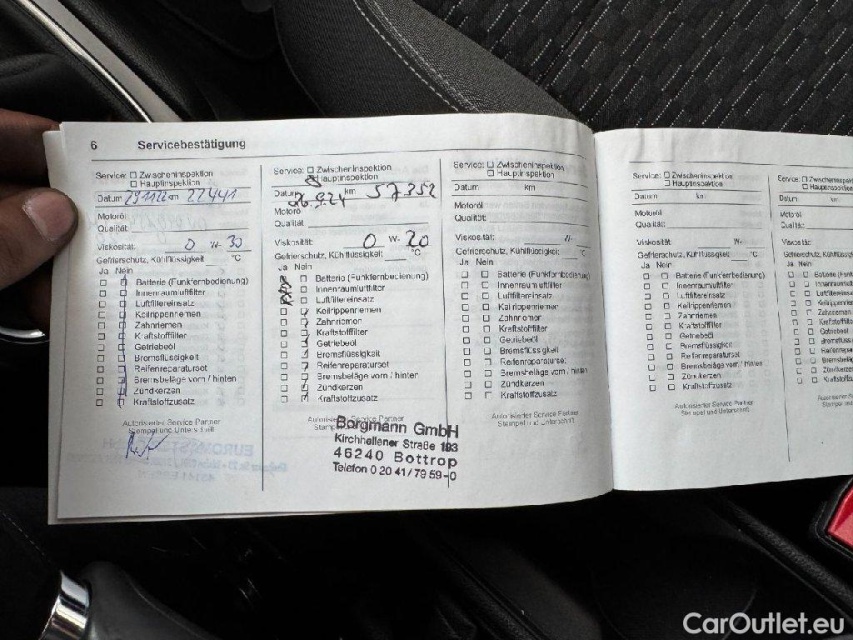 6 Servicebestätigung
Service: Zwischeninspektion
Hauptinspektion
Datum 29.11.22 km 22441
Motoröl
Qualität:
Viskosität: 0 W- 30
Gefrierschutz, Kühlflüssigkeit °C
Ja Nein
Batterie (Funkfernbedienung)
Innenraumluftfilter
Luftfiltereinsatz
Keilrippenriemen
Zahnriemen
Kraftstofffilter
Getriebeöl
Bremsflüssigkeit
Reifenreparaturset
Bremsbeläge vorn / hinten
Zündkerzen
Kraftstoffzusatz
Autorisierter Service Partner
Stempel und Unterschrift
Service: Zwischeninspektion
Hauptinspektion
Datum 26.9.24 km 57352
Motoröl
Qualität
Viskosität: 0 W- 20
Gefrierschutz, Kühlflüssigkeit °C
Ja Nein
Batterie (Funkfernbedienung)
Innenraumluftfilter
Luftfiltereinsatz
Keilrippenriemen
Zahnriemen
Kraftstofffilter
Getriebeöl
Bremsflüssigkeit
Reifenreparaturset
Bremsbeläge vorn / hinten
Zündkerzen
Kraftstoffzusatz
Autorisierter Service Partner
Borgmann GmbH
Kirchhellener Straße 193
46240 Bottrop
Telefon 0 20 41 / 79 59-0
Service: Zwischeninspektion
Hauptinspektion
Datum km
Motoröl
Qualität:
Viskosität: W-
Gefrierschutz, Kühlflüssigkeit °C
Ja Nein
Batterie (Funkfernbedienung)
Innenraumluftfilter
Luftfiltereinsatz
Keilrippenriemen
Zahnriemen
Kraftstofffilter
Getriebeöl
Bremsflüssigkeit
Reifenreparaturset
Bremsbeläge vorn / hinten
Zündkerzen
Kraftstoffzusatz
Autorisierter Service Partner
Stempel und Unterschrift
Service: Zwischeninspektion
Hauptinspektion
Datum km
Motoröl
Qualität:
Viskosität: W-
Gefrierschutz, Kühlflüssigkeit °C
Ja Nein
Batterie (Funkfernbedienung)
Innenraumluftfilter
Luftfiltereinsatz
Keilrippenriemen
Zahnriemen
Kraftstofffilter
Getriebeöl
Bremsflüssigkeit
Reifenreparaturset
Bremsbeläge vorn / hinten
Zündkerzen
Kraftstoffzusatz
Autorisierter Service Partner
Stempel und Unterschrift
CarOutlet.eu